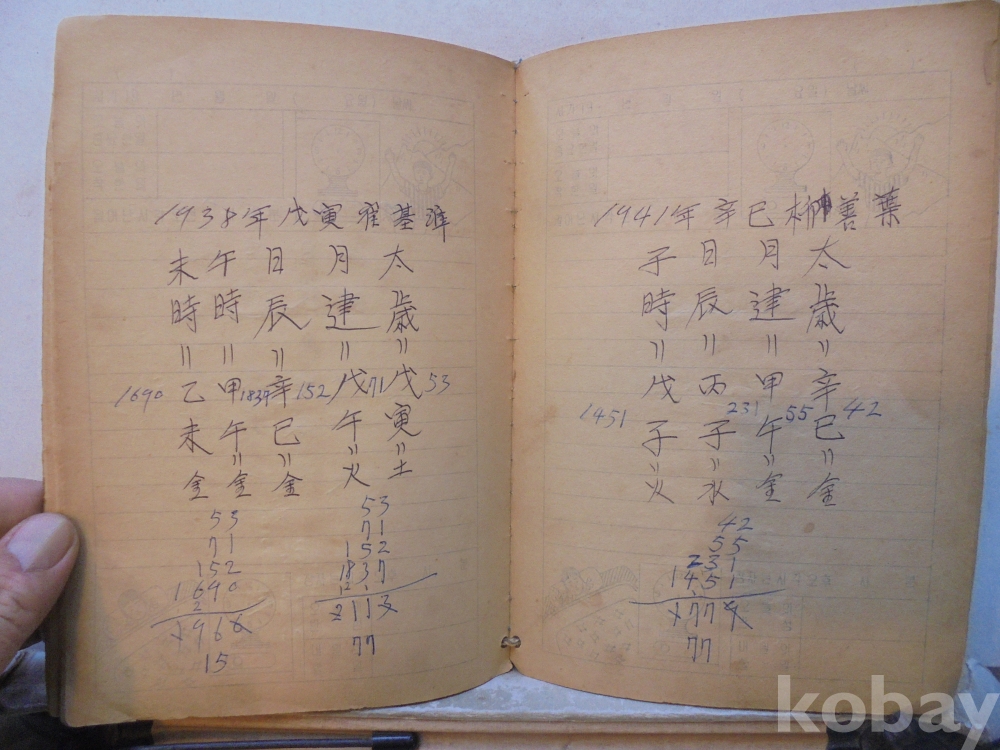 1938年 戊寅 崔基準
太歲=戊寅=土
53
月建=戊午=火
71
日辰=辛巳=金
152
午時=甲午=金
1839
未時=乙未金
1690
53
71
152
1837
2113
77
53
71
152
1690
1966
15
1941年 辛巳 柳善葉
太歲=辛巳=金
42
月建=甲午=金
55
日辰=丙子=水
231
子時=戊子火
1451
42
55
231
1451
1779
77
kobay